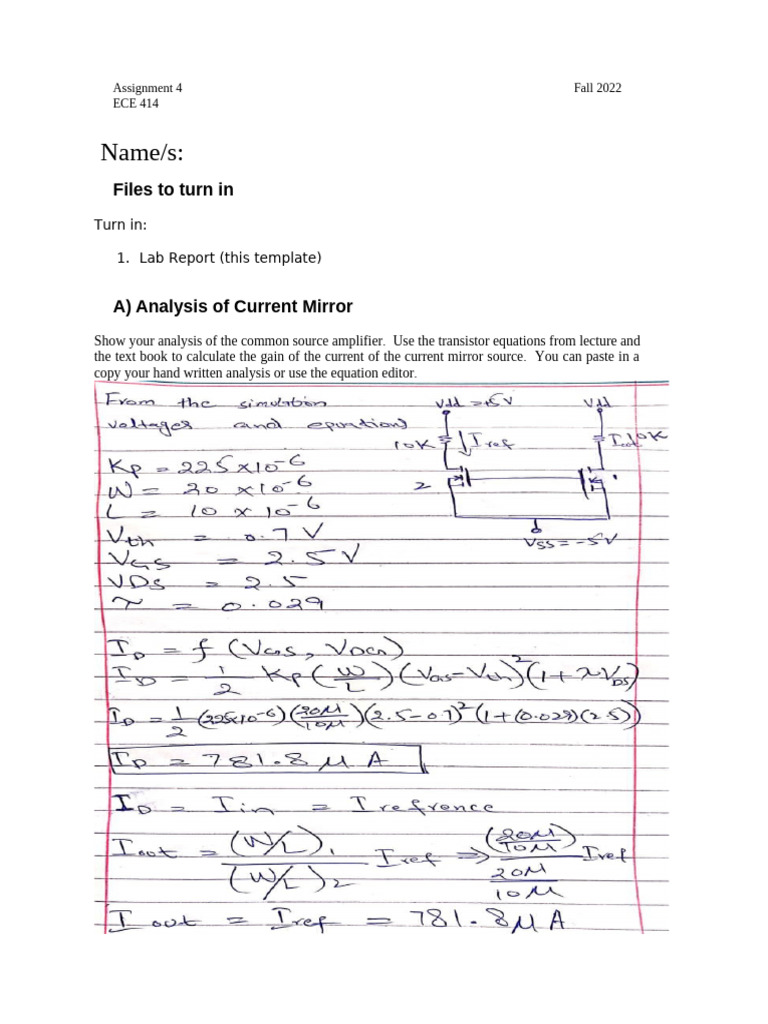 Assignment 4 Fall 2022
ECE 414
Name/s:
Files to turn in
Turn in:
1. Lab Report (this template)
A) Analysis of Current Mirror
Show your analysis of the common source amplifier. Use the transistor equations from lecture and
the text book to calculate the gain of the current of the current mirror source. You can paste in a
copy your hand written analysis or use the equation editor.
From the simulation
voltages and equation
Vdd = +5V Vdd
10K Iref Iout 10K
2 1
Vss = -5V
Kp = 225×10⁻⁶
W = 20 ×10⁻⁶
L = 10 × 10⁻⁶
Vth = 0.7 V
VGS = 2.5 V
VDS = 2.5
λ = 0.029
ID = f (VGS, VDCn)
ID = 1/2 Kp (W/L) (VGS-Vth)² (1 + λVDS)
ID = 1/2 (225×10⁻⁶) (20M/10M) (2.5-0.7)² (1+(0.029)(2.5))
ID = 781.8 M A
ID = Iin = Irefrence
Iout = (W/L)1 / (W/L)2 Iref => (20M/10M) / 20M/10M Iref
Iout = Iref = 781.8M A